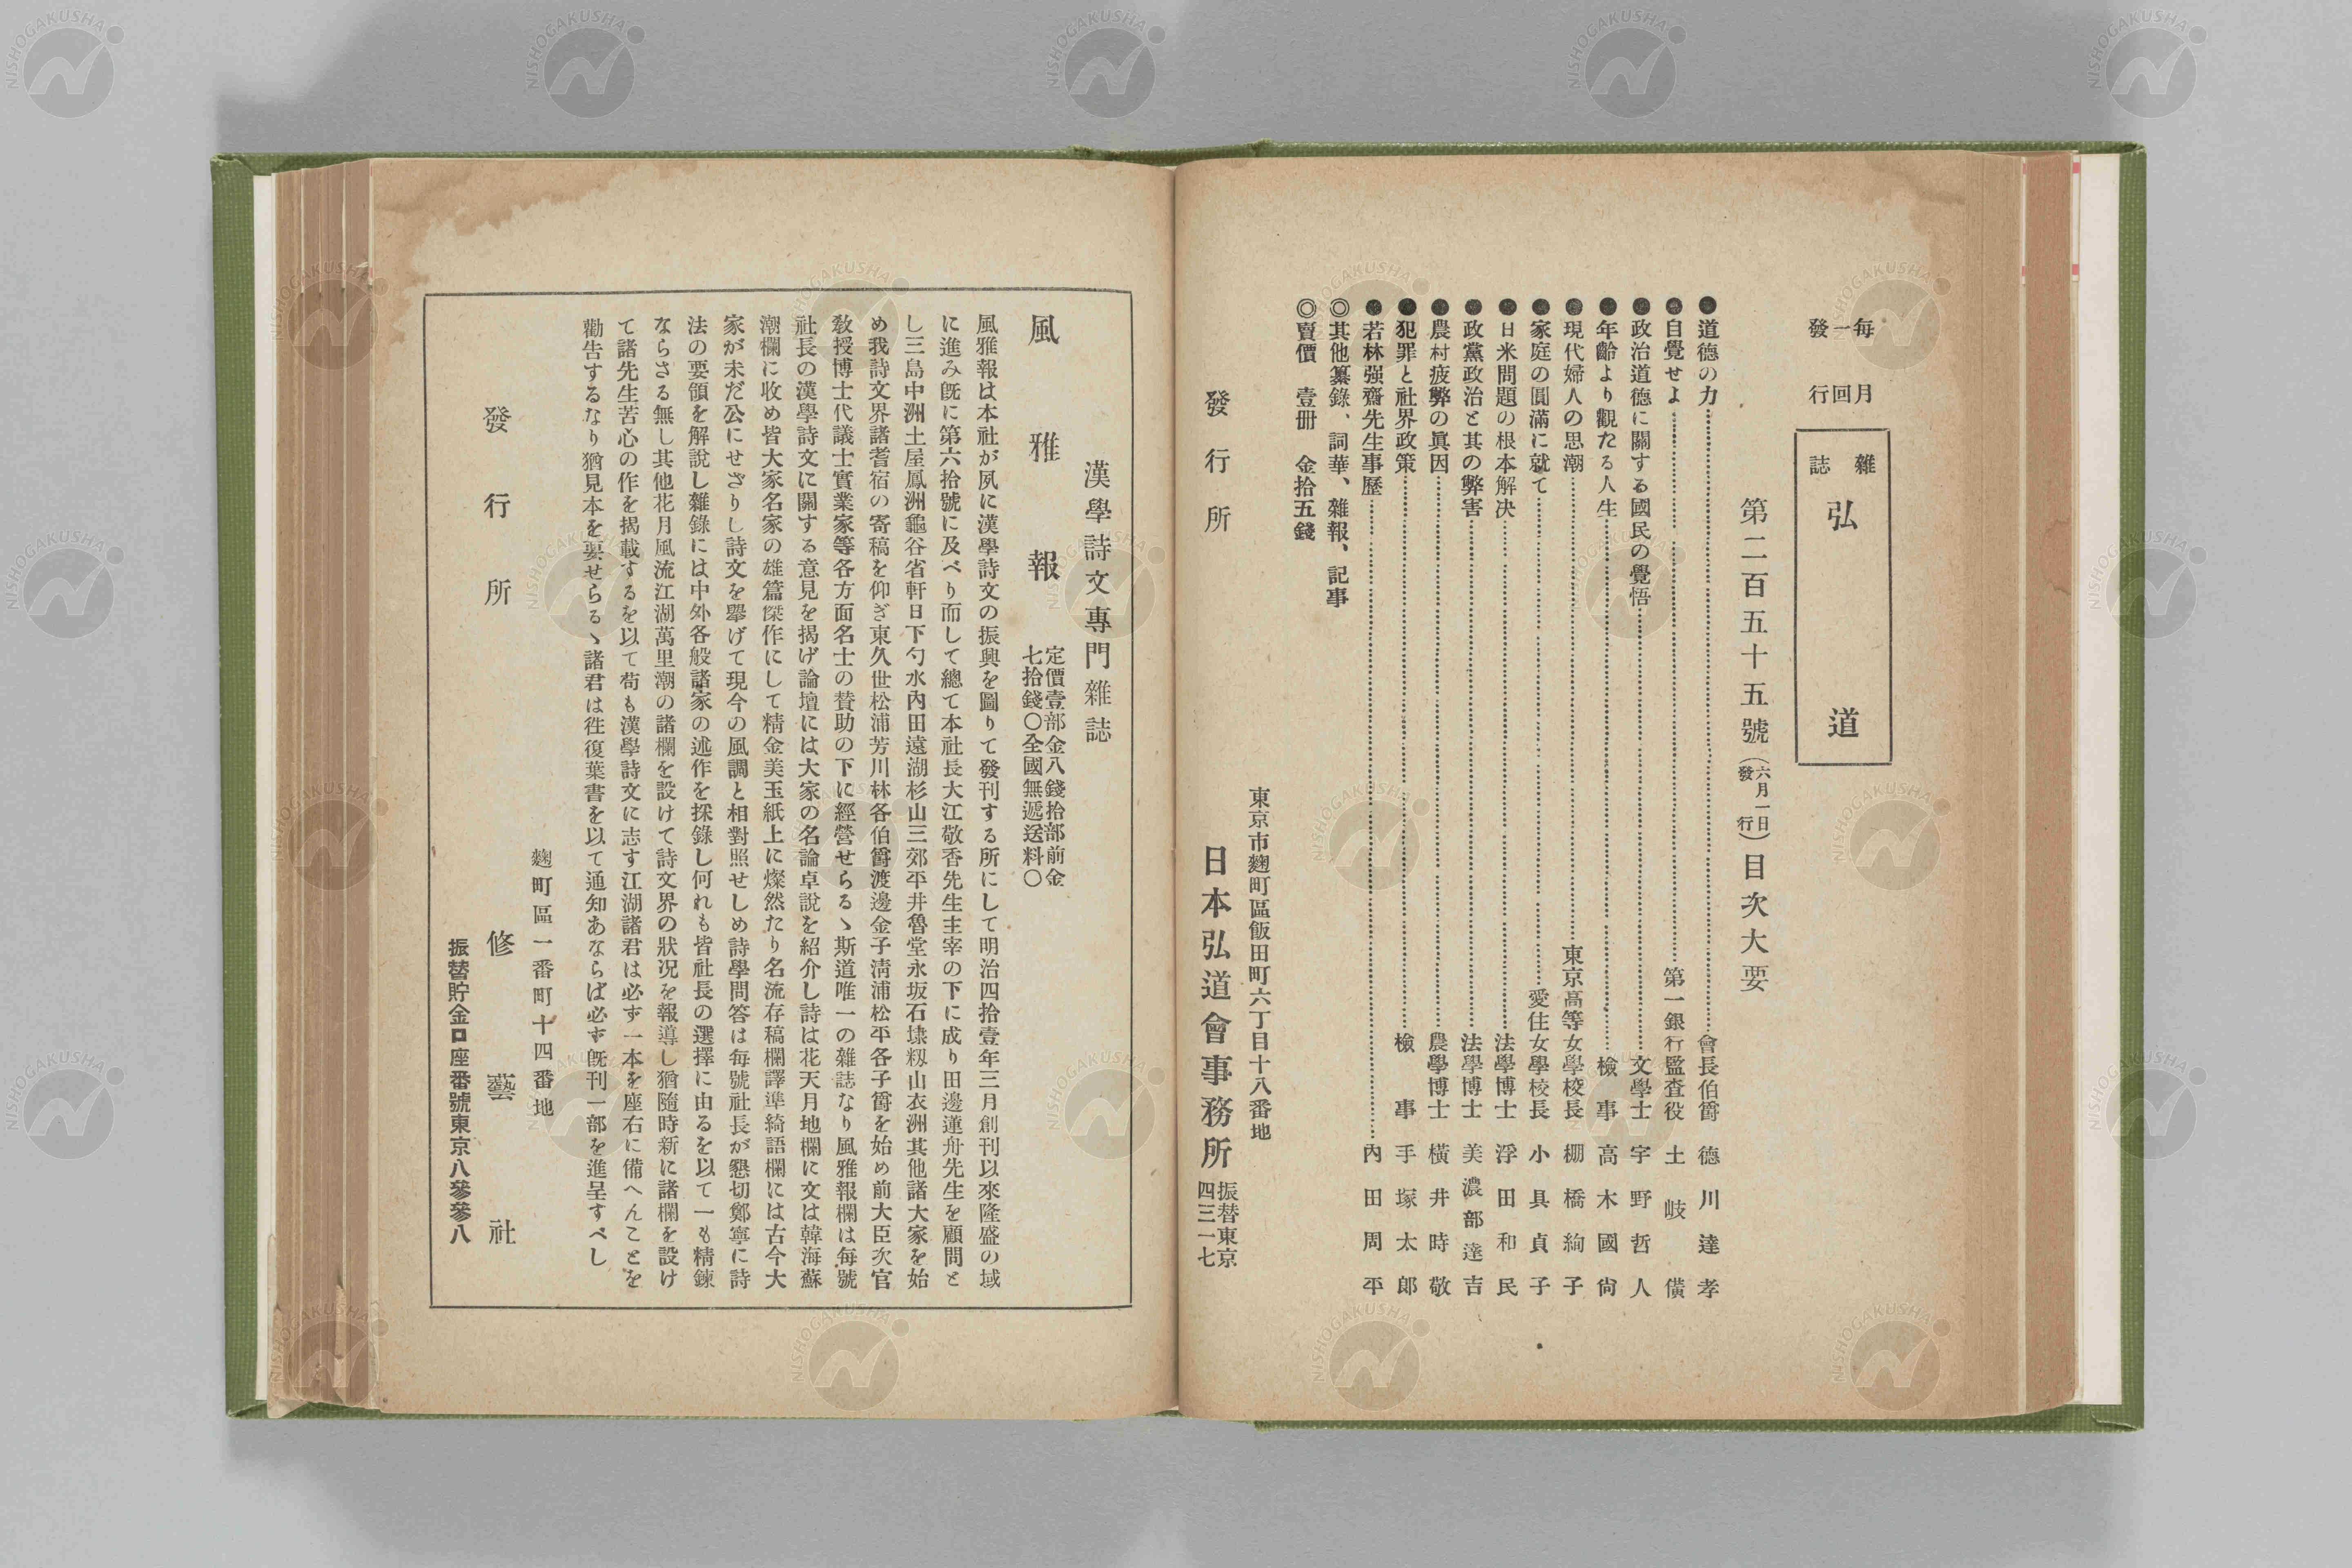 每月一回發行
雜誌 弘道
第二百五十五號(六月一日發行)目次大要
●道德の力……會長伯爵 德川達孝
●自覺せよ……第一銀行監査役 土岐僙
●政治道德に關する國民の覺悟……文學士 宇野哲人
●年齡より觀たる人生……檢事 高木國尙
●現代婦人の思潮……東京高等女學校長 棚橋絢子
●家庭の圓滿に就て……愛住女學校長 小具貞子
●日米問題の根本解決……法學博士 浮田和民
●政黨政治と其の弊害……法學博士 美濃部達吉
●農村疲弊の眞因……農學博士 橫井時敬
●犯罪と社界政策……檢事 手塚太郎
●若林强齋先生事歷……內田周平
◎其他纂錄、詞華、雜報、記事
◎賣價 壹册 金拾五錢
東京市麴町區飯田町六丁目十八番地
發行所 日本弘道會事務所 振替東京四三一七
漢學詩文專門雜誌
風雅報 定價壹部金八錢拾部前金七拾錢〇全國無遞送料〇
風雅報は本社が夙に漢學詩文の振興を圖りて發刊する所にして明治四拾壹年三月創刊以來隆盛の域
に進み旣に第六拾號に及べり而して總て本社長大江敬香先生主宰の下に成り田邊蓮舟先生を顧問と
し三島中洲土屋鳳洲龜谷省軒日下勺水內田遠湖杉山三郊平井魯堂永坂石埭籾山衣洲其他諸大家を始
め我詩文界諸耆宿の寄稿を仰ぎ東久世松浦芳川林各伯爵渡邊金子淸浦松平各子爵を始め前大臣次官
敎授博士代議士實業家等各方面名士の贊助の下に經營せらるゝ斯道唯一の雜誌なり風雅報欄は每號
社長の漢學詩文に關する意見を揭げ論壇には大家の名論卓說を紹介し詩は花天月地欄に文は韓海蘇
潮欄に收め皆大家名家の雄篇傑作にして精金美玉紙上に燦然たり名流存稿欄譯準綺語欄には古今大
家が未だ公にせざりし詩文を擧げて現今の風調と相對照せしめ詩學問答は每號社長が懇切鄭寧に詩
法の要領を解說し雜錄には中外各般諸家の述作を採錄し何れも皆社長の選擇に由るを以て一も精鍊
ならさる無し其他花月風流江湖萬里潮の諸欄を設けて詩文界の狀況を報導し猶隨時新に諸欄を設け
て諸先生苦心の作を揭載するを以て苟も漢學詩文に志す江湖諸君は必ず一本を座右に備へんことを
勸告するなり猶見本を要せらるゝ諸君は徃復葉書を以て通知あならば必ず旣刊一部を進呈すべし
麴町區一番町十四番地
發行所 修藝社
振替貯金口座番號東京八參參八